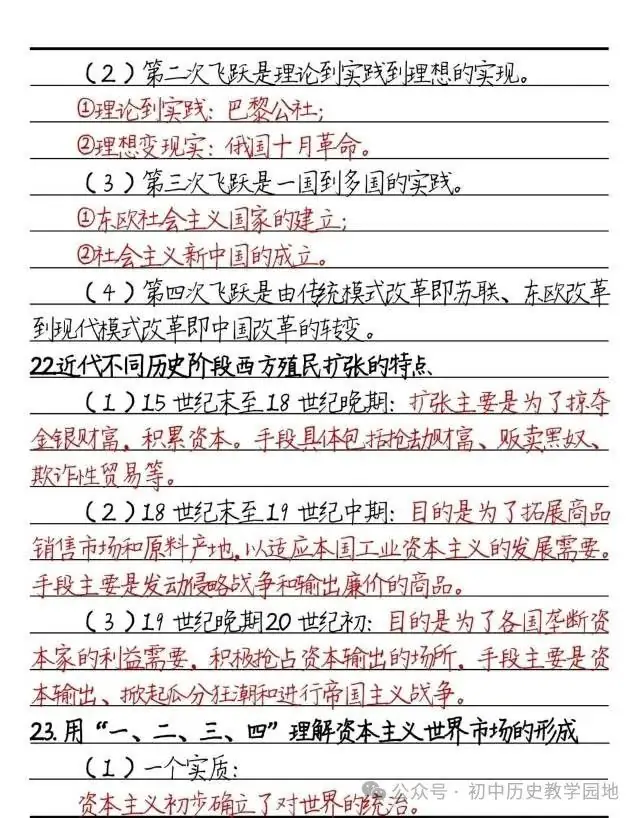 （2）第二次飞跃是理论到实践到理想的实现。
①理论到实践：巴黎公社；
②理想变现实：俄国十月革命。
（3）第三次飞跃是一国到多国的实践。
①东欧社会主义国家的建立；
②社会主义新中国的成立。
（4）第四次飞跃是由传统模式改革即苏联、东欧改革
到现代模式改革即中国改革的转变。
22近代不同历史阶段西方殖民扩张的特点、
（1）15 世纪末至 18 世纪晚期：扩张主要是为了掠夺
金银财富，积累资本。手段具体包括抢劫财富、贩卖黑奴、
欺诈性贸易等。
（2）18 世纪末至 19 世纪中期：目的是为了拓展商品
销售市场和原料产地，以适应本国工业资本主义的发展需要。
手段主要是发动侵略战争和输出廉价的商品。
（3）19 世纪晚期20 世纪初：目的是为了各国垄断资
本家的利益需要，积极抢占资本输出的场所，手段主要是资
本输出、掀起瓜分狂潮和进行帝国主义战争。
23.用“一、二、三、四”理解资本主义世界市场的形成
（1）一个实质：
资本主义初步确立了对世界的统治。
公众号·初中历史教学园地